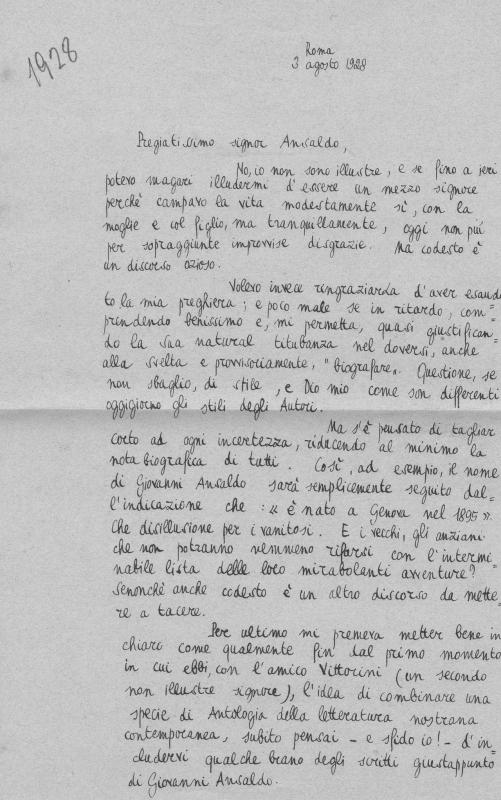 1928
Roma
3 agosto 1928
Pregiatissimo signor Ansaldo,
No, io non sono illustre, e se fino a jeri
potevo magari illudermi d'essere un mezzo signore
perchè campavo la vita modestamente sì, con la
moglie e col figlio, ma tranquillamente, oggi non più
per sopraggiunte improvvise disgrazie. Ma codesto è
un discorso ozioso.
Volevo invece ringraziarLa d'aver esaudi
to la mia preghiera; e poco male se in ritardo, com=
prendendo benissimo e, mi permetta, quasi giustifican=
do la sua natural titubanza nel doversi, anche
alla svelta e provvisoriamente, "biografare". Questione, se
non sbaglio, di stile, e Dio mio come son differenti
oggigiorno gli stili degli Autori.
Ma s'è pensato di tagliar
corto ad ogni incertezza, riducendo al minimo la
nota biografica di tutti. Così, ad esempio, il nome
di Giovanni Ansaldo sarà semplicemente seguito dal=
l'indicazione che: "è nato a Genova nel 1895".
Che disillusione per i vanitosi. E i vecchi, gli anziani
che non potranno nemmeno rifarsi con l'intermi
nabile lista delle loro mirabolanti avventure?=
Senonchè anche codesto è un altro discorso da mette=
re a tacere.
Per ultimo mi premeva metter bene in
chiaro come qualmente fin dal primo momento
in cui ebbi, con l'amico Vittorini (un secondo
non illustre signore), l'idea di combinare una
specie di Antologia della letteratura nostrana
contemporanea, subito pensai - e sfido io! - d'in=
cludervi qualche brano degli scritti giustappunto
di Giovanni Ansaldo.